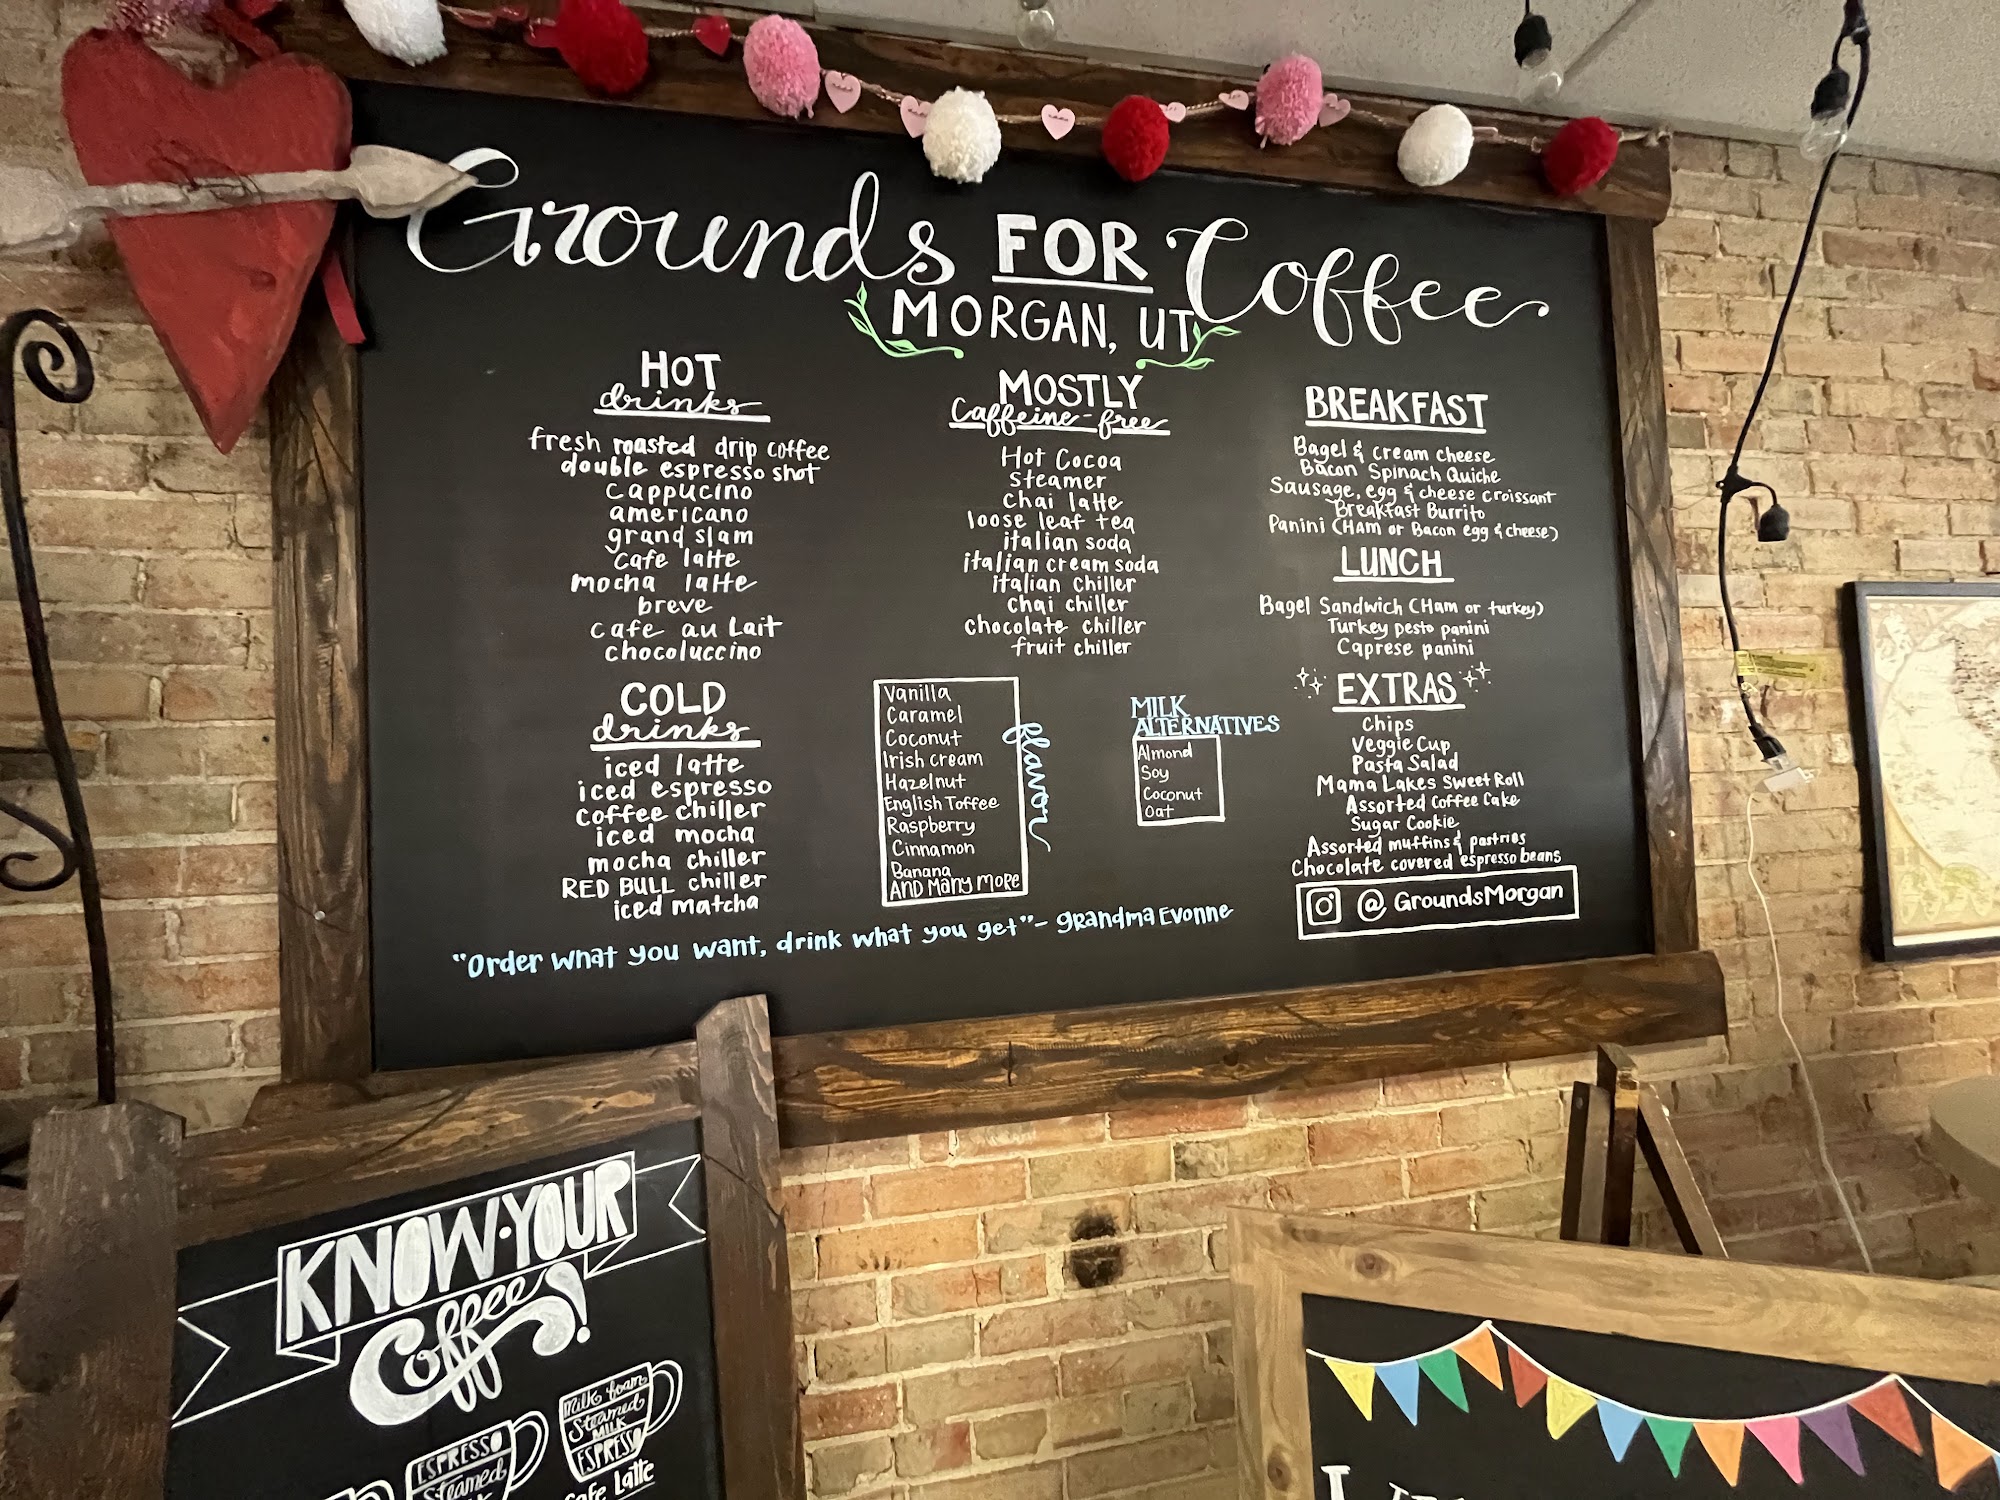 Grounds FOR Coffee
MORGAN, UT
HOT
drinks
fresh roasted drip coffee
double espresso shot
cappucino
americano
grand slam
cafe latte
mocha latte
breve
cafe au Lait
chocoluccino
COLD
drinks
iced latte
iced espresso
coffee chiller
iced mocha
mocha chiller
RED BULL chiller
iced matcha
MOSTLY
Caffeine-free
Hot Cocoa
Steamer
Chai latte
loose leaf tea
italian soda
italian cream soda
italian chiller
chai chiller
chocolate chiller
fruit chiller
Vanilla
Caramel
Coconut
Irish cream
Hazelnut
English Toffee
Raspberry
Cinnamon
Banana
AND MANY MORE
flavor
MILK
ALTERNATIVES
Almond
Soy
Coconut
Oat
BREAKFAST
Bagel & cream cheese
Bacon Spinach Quiche
Sausage, egg & cheese croissant
Breakfast Burrito
Panini (HAM or Bacon egg & cheese)
LUNCH
Bagel Sandwich (Ham or turkey)
Turkey pesto panini
Caprese panini
EXTRAS
Chips
Veggie Cup
Pasta Salad
Mama Lakes Sweet Roll
Assorted Coffee Cake
Sugar Cookie
Assorted muffins & pastries
Chocolate covered espresso beans
@ GroundsMorgan
"Order what you want, drink what you get" - Grandma Evonne
KNOW·YOUR
Coffee!
Milk foam
Steamed
MILK
ESPRESSO
Cafe Latte
ESPRESSO
Steamed